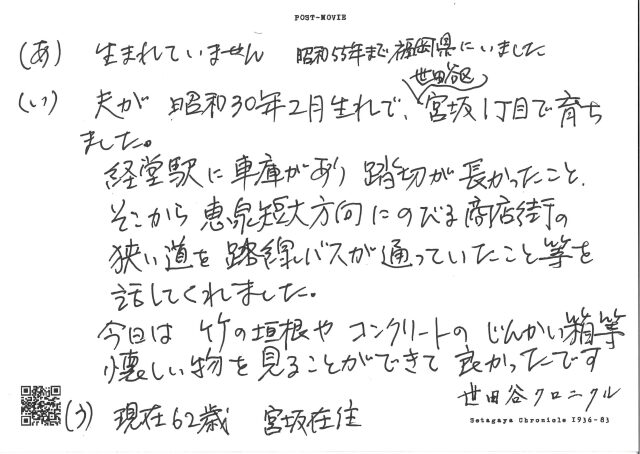 POST-MOVIE
(あ) 生まれていません 昭和55年まで福岡県にいました
(い) 夫が 昭和30年2月生れで、世田谷区宮坂1丁目で育ち
ました。
経堂駅に車庫があり 踏切が長かったこと、
そこから恵泉短大方向にのびる商店街の
狭い道を路線バスが通っていたこと等を
話してくれました。
今日は 竹の垣根や コンクリートの じんかい箱等
懐しい物を見ることができて 良かったです
(う) 現在62歳 宮坂在住
世田谷クロニクル
Setagaya Chronicle 1936-83